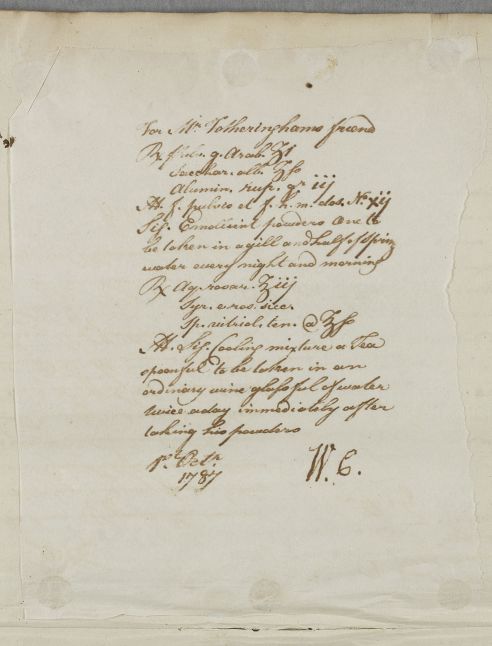 For Mr. Fotheringhams friend
℞ Pulv. g. Arab. ʒ1
Sacchar. alb. ʒſs
Alumin. rup. gr iij
M. f. pulvis et f. h. m. dos. No. xij
Sig. Emollient powders One to
be taken in a gill and half of Spring
water every night and morning
℞ Aq. rosar. ℥iij
Syr. e ros. sicc.
Sp. vitriol. ten. @ ℥ſs
M. Sig. Cooling mixture a Tea
spoonful to be taken in an
ordinary wine glass full of water
twice a day immediately after
taking his powders
St. Petr.
1787 W. C.